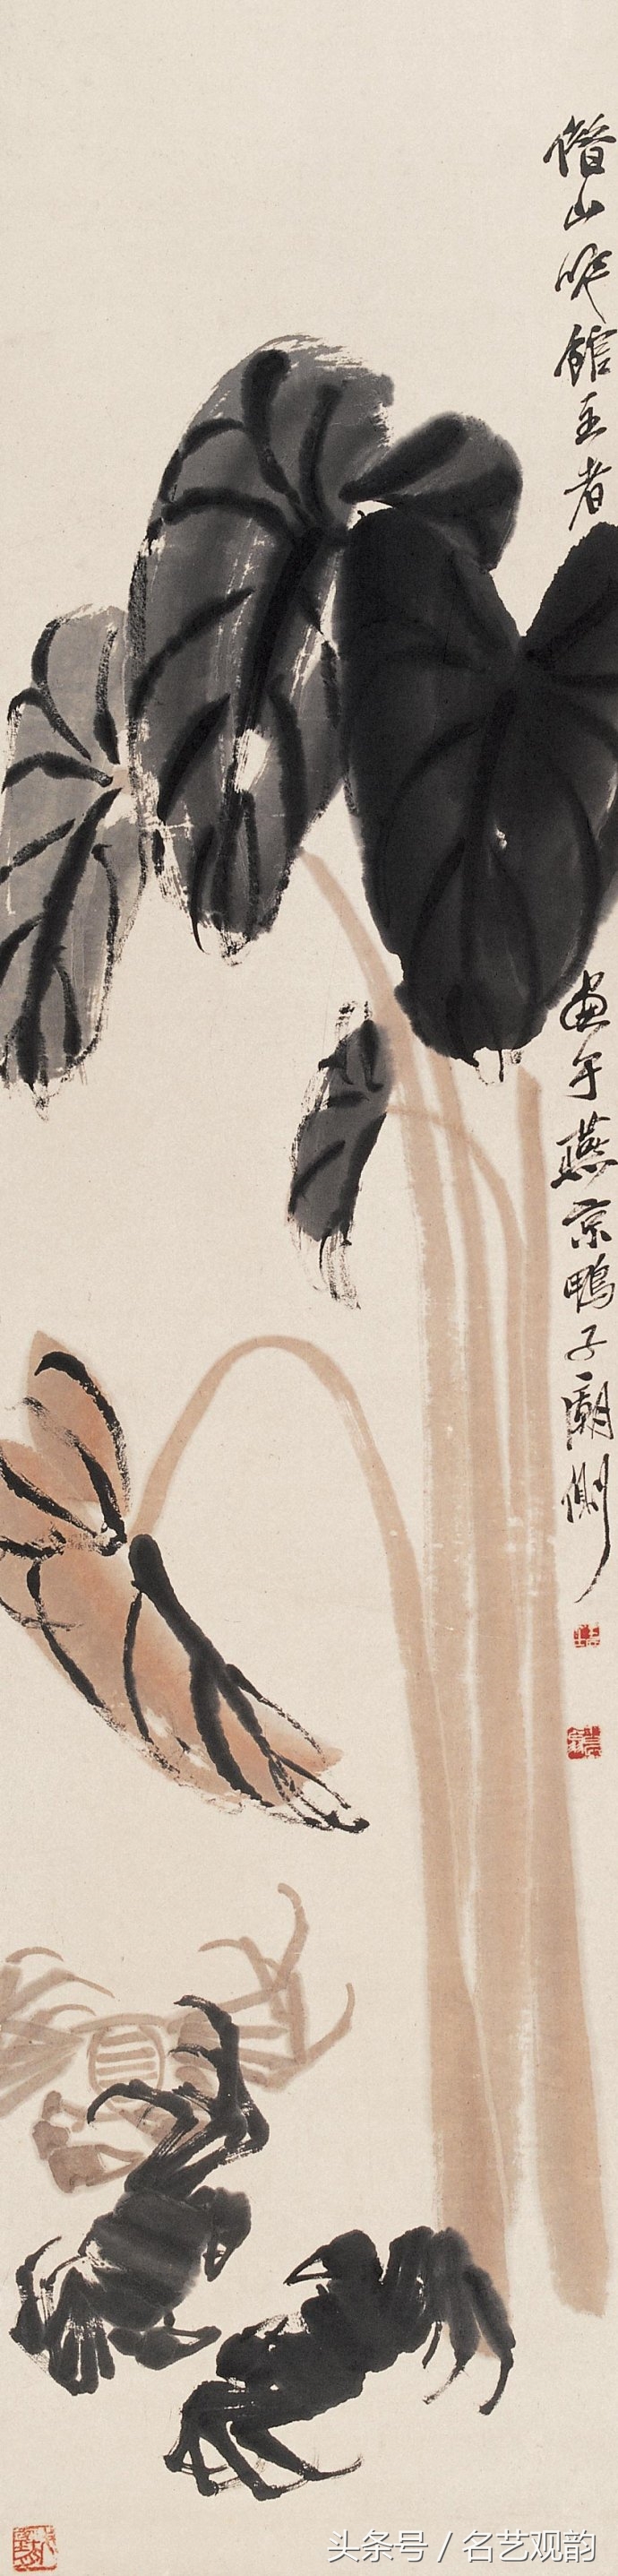 借山吟館主者
畫于燕京鴨子廟側
头条号 / 名艺观韵